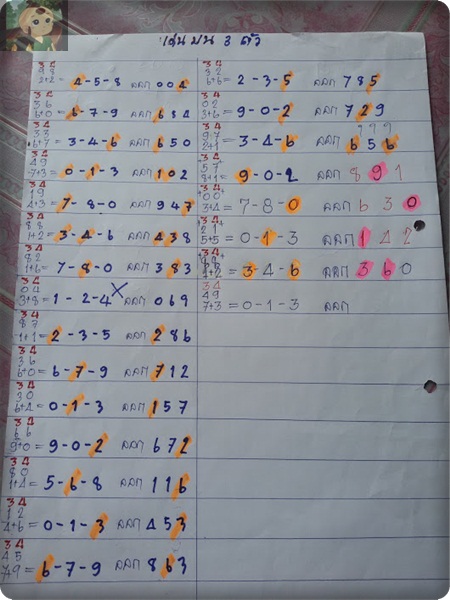 เด่นบน 3 ตัว
3 4
9 8
2+2 = 4-5-8 ออก 004
3 4
3 6
6+0 = 6-7-9 ออก 684
3 4
3 3
6+7 = 3-4-6 ออก 650
3 4
4 9
7+3 = 0-1-3 ออก 102
3 4
1 9
4+3 = 7-8-0 ออก 947
3 4
8 8
1+2 = 3-4-6 ออก 438
3 4
8 2
1+6 = 7-8-0 ออก 383
3 4
0 4
3+8 = 1-2-4 X ออก 069
3 4
8 7
1+1 = 2-3-5 ออก 286
3 4
3 6
6+0 = 6-7-9 ออก 712
3 4
3 0
6+4 = 0-1-3 ออก 157
3 4
6 6
9+0 = 9-0-2 ออก 672
3 4
8 0
1+4 = 5-6-8 ออก 116
3 4
1 2
4+6 = 0-1-3 ออก 453
3 4
4 5
7+9 = 6-7-9 ออก 863
3 4
3 2
6+6 = 2-3-5 ออก 785
3 4
0 2
3+6 = 9-0-2 ออก 729
3 4
9 7
2+1 = 3-4-6 ออก 656
3 4
5 7
8+1 = 9-0-2 ออก 891
3 4
0 0
3+4 = 7-8-0 ออก 630
3 4
2 1
5+5 = 0-1-3 ออก 142
3 4
= 3-4-6 ออก 360
3 4
4 9
7+3 = 0-1-3 ออก